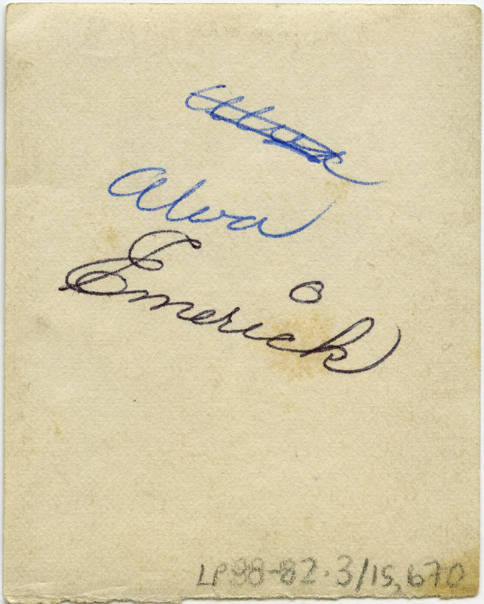 Alva
Emerick
LP98-82.3/15,670